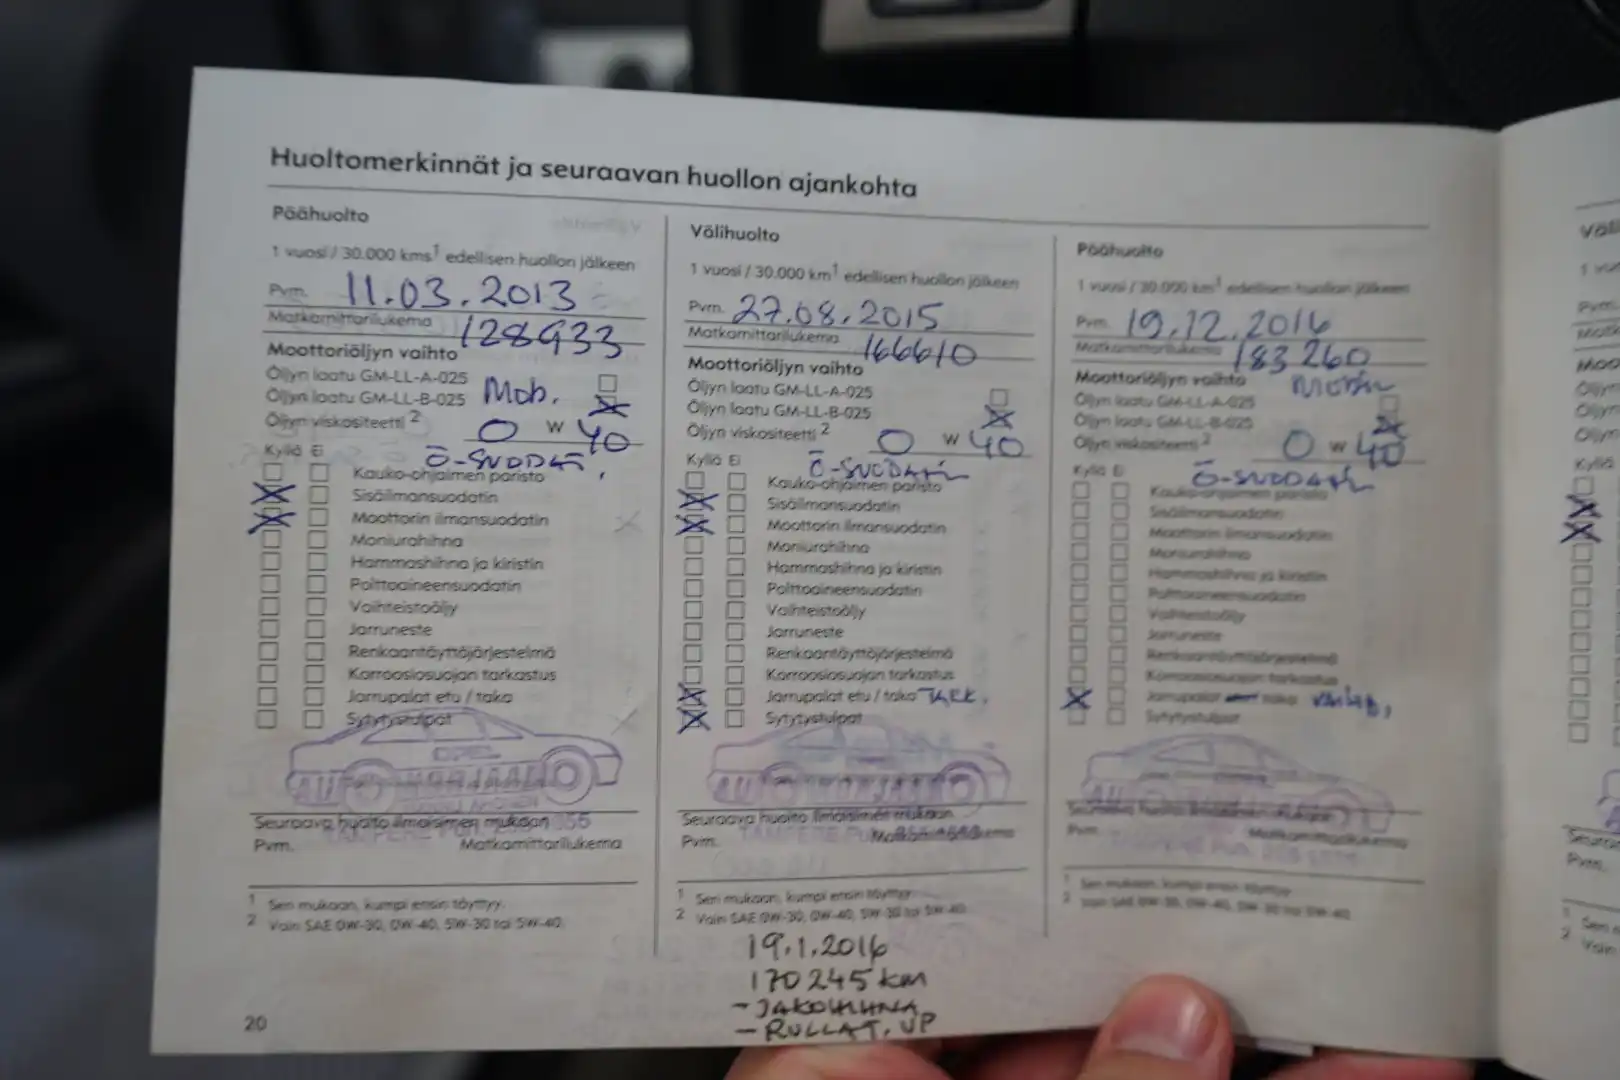 Huoltomerkinnät ja seuraavan huollon ajankohta
Päähuolto
1 vuosi / 30.000 kms¹ edellisen huollon jälkeen
Pvm. 11.03.2013
Matkamittarilukema 128933
Moottoriöljyn vaihto
Öljyn laatu GM-LL-A-025
Öljyn laatu GM-LL-B-025 Mob.
Öljyn viskositeetti ² 0 W 40
Kyllä Ei Ö-SUODAT.
Kauko-ohjaimen paristo
Sisäilmansuodatin
Moottorin ilmansuodatin
Moniurahihna
Hammashihna ja kiristin
Polttoaineensuodatin
Vaihteistoöljy
Jarruneste
Renkaantäyttöjärjestelmä
Korroosiosuojan tarkastus
Jarrupalat etu / taka
Sytytystulpat
OPEL
Seuraava huolto ilmaisimen mukaan
Pvm. Matkamittarilukema
1 Sen mukaan, kumpi ensin täyttyy.
2 Vain SAE 0W-30, 0W-40, 5W-30 tai 5W-40.
20
Välihuolto
1 vuosi / 30.000 km¹ edellisen huollon jälkeen
Pvm. 27.08.2015
Matkamittarilukema 166610
Moottoriöljyn vaihto
Öljyn laatu GM-LL-A-025
Öljyn laatu GM-LL-B-025
Öljyn viskositeetti ² 0 W 40
Kyllä Ei Ö-SUODATIN
Kauko-ohjaimen paristo
Sisäilmansuodatin
Moottorin ilmansuodatin
Moniurahihna
Hammashihna ja kiristin
Polttoaineensuodatin
Vaihteistoöljy
Jarruneste
Renkaantäyttöjärjestelmä
Korroosiosuojan tarkastus
Jarrupalat etu / taka TARK.
Sytytystulpat
AUTOKORJAAMO
Seuraava huolto ilmaisimen mukaan
TAMPERE
Pvm. Matkamittarilukema
1 Sen mukaan, kumpi ensin täyttyy.
2 Vain SAE 0W-30, 0W-40, 5W-30 tai 5W-40.
19.1.2016
170245 km
- JAKOHIHNA
- RULLAT, VP
Päähuolto
1 vuosi / 30.000 km¹ edellisen huollon jälkeen
Pvm. 19.12.2016
Matkamittarilukema 183260
Moottoriöljyn vaihto
Öljyn laatu GM-LL-A-025
Öljyn laatu GM-LL-B-025
Öljyn viskositeetti ² 0 W 40
Kyllä Ei Ö-SUODATIN
Kauko-ohjaimen paristo
Sisäilmansuodatin
Moottorin ilmansuodatin
Moniurahihna
Hammashihna ja kiristin
Polttoaineensuodatin
Vaihteistoöljy
Jarruneste
Renkaantäyttöjärjestelmä
Korroosiosuojan tarkastus
Jarrupalat etu / taka
Sytytystulpat
Seuraava huolto ilmaisimen mukaan
Pvm. Matkamittarilukema
1 Sen mukaan, kumpi ensin täyttyy.
2 Vain SAE 0W-30, 0W-40, 5W-30 tai 5W-40.